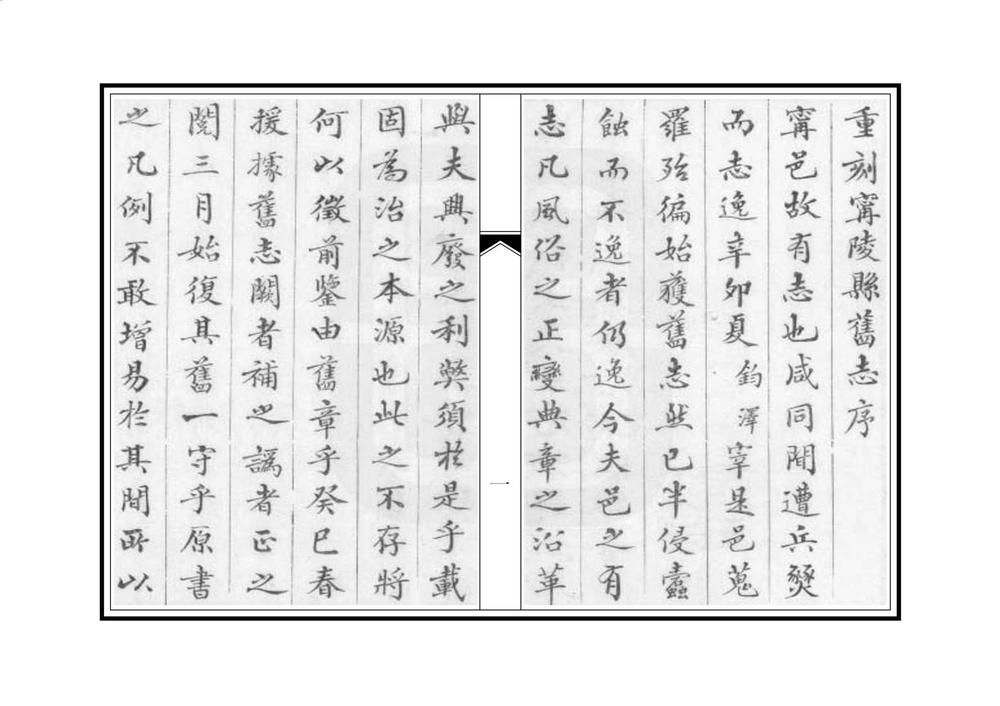 重刻甯陵縣舊志序
甯邑故有志也咸同間遭兵燹
而志逸辛卯夏鈞澤宰是邑蒐
羅殆徧始獲舊志然已半侵蠹
蝕而不逸者仍逸今夫邑之有
志凡風俗之正變典章之沿革
一
與夫興廢之利獘須於是乎載
固為治之本源也此之不存將
何以徵前鑒由舊章乎癸巳春
援據舊志闕者補之譌者正之
閱三月始復其舊一守乎原書
之凡例不敢增易於其間所以